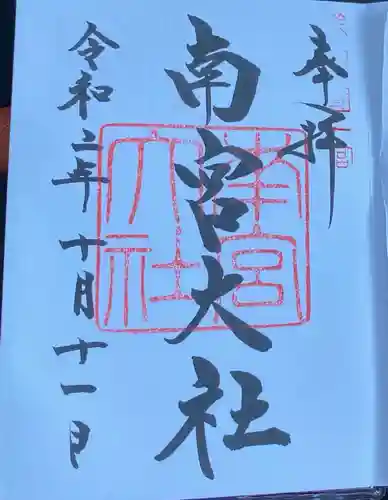 奉拝
南宮大社
令和二年十月十一日
南宮
大社